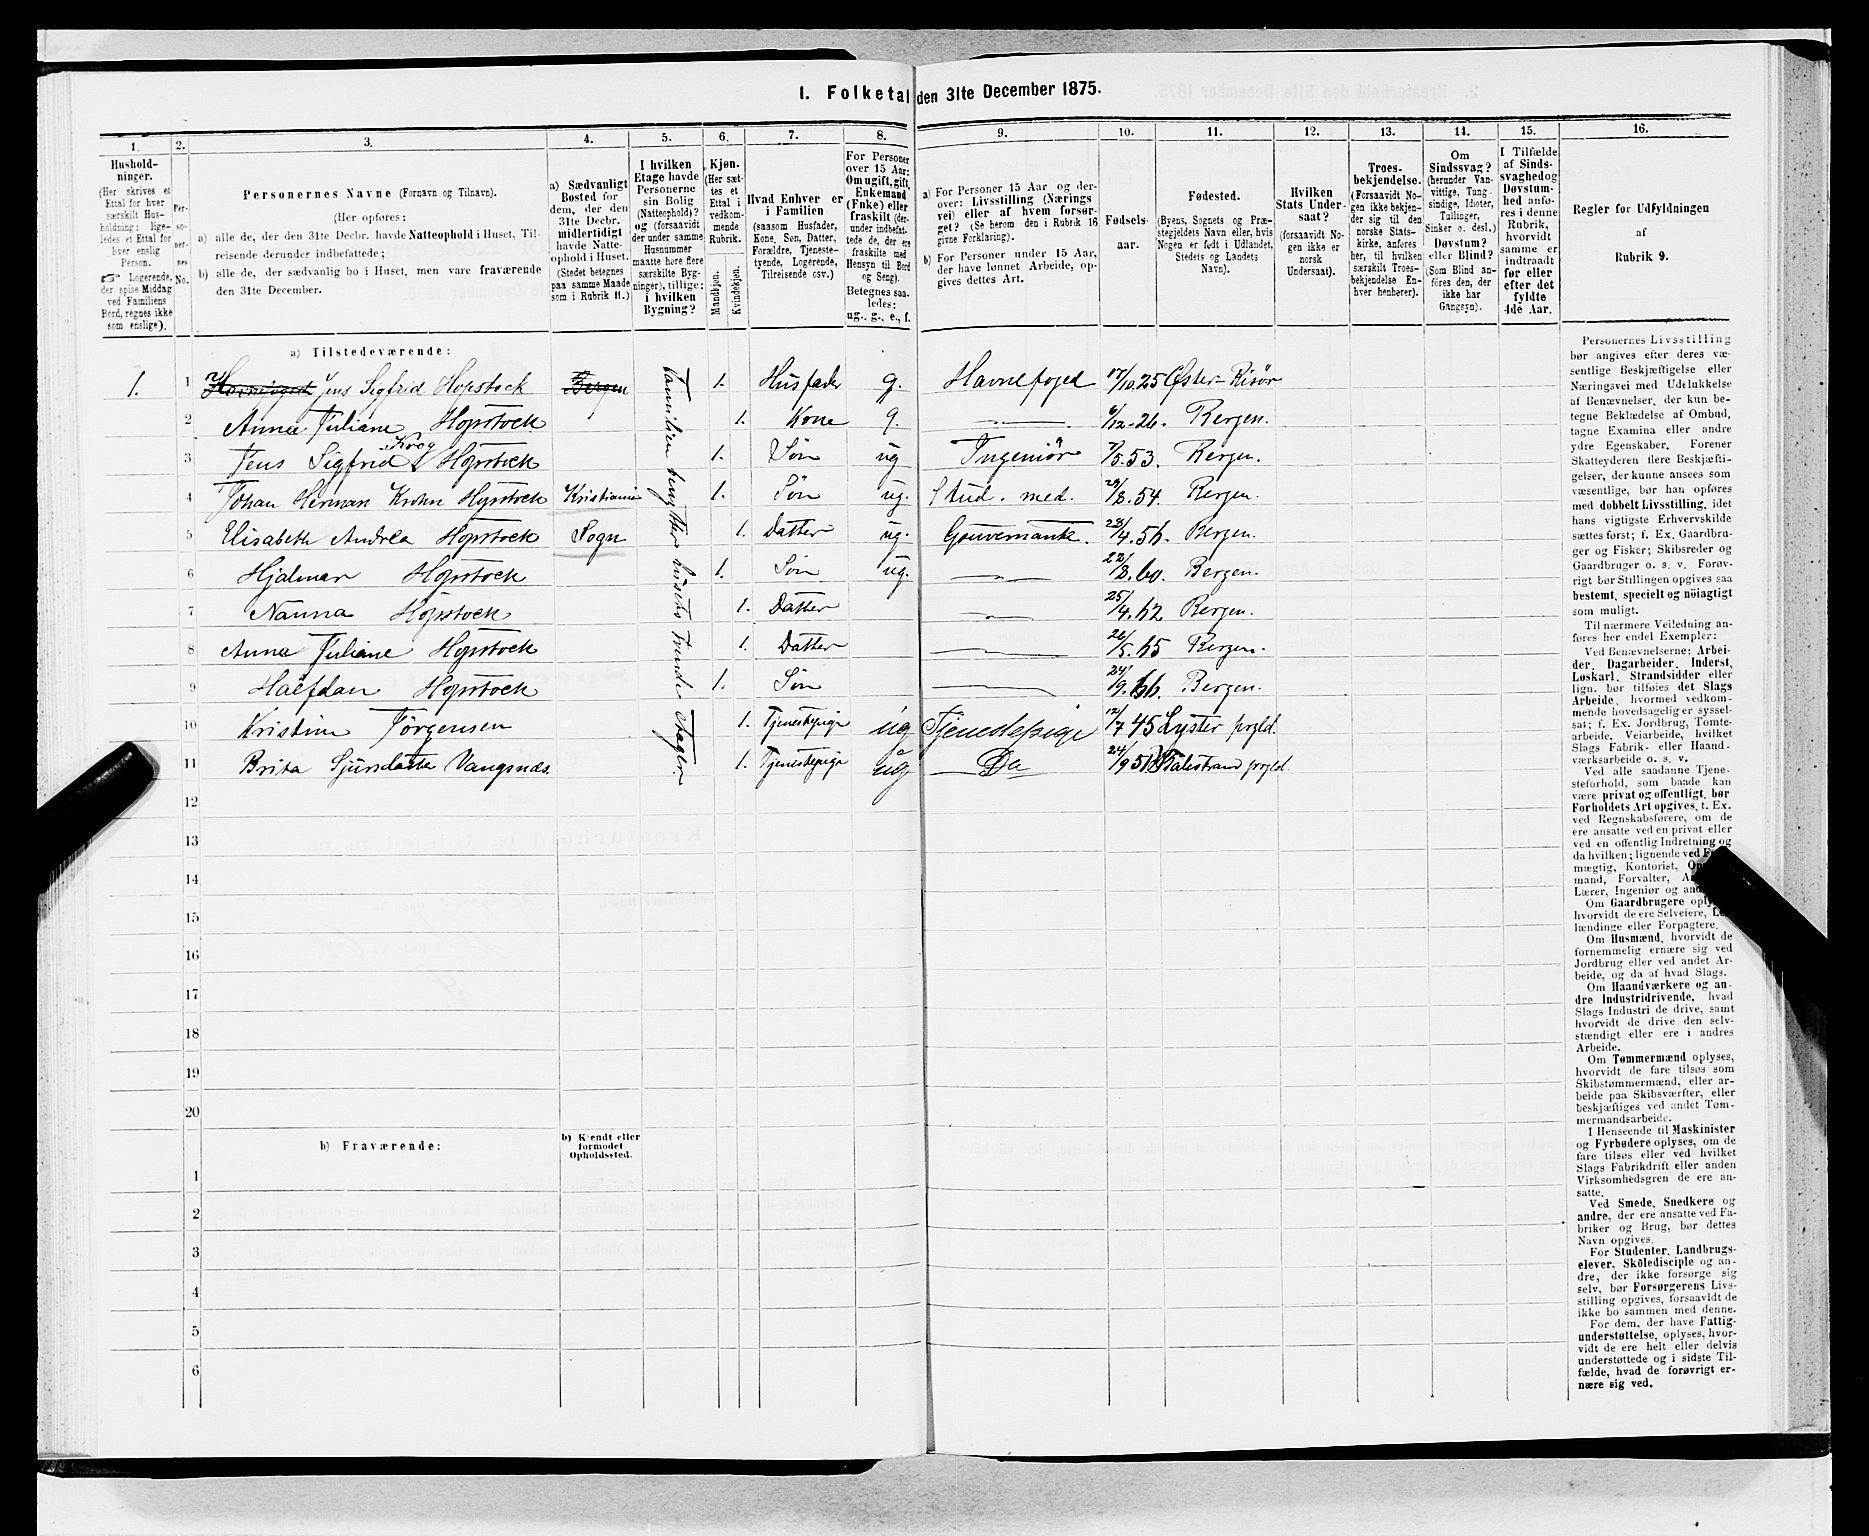 1. Folketal den 31te December 1875.
1. 2. 3. 4. 5. 6. 7. 8. 9. 10. 11. 12. 13. 14. 15. 16.
Hushold-
ninger.
(Her skrives et
Ettal for hver
særskilt Hus-
holdning; lige-
ledes et Ettal for
hver enslig
Person.
☞ Logerende,
der spise Middag
ved Familiens
Bord, regnes ikke
som enslige).
Per-
so-
ner-
nes
No.
Personernes Navne (Fornavn og Tilnavn).
(Her opføres:
a) alle de, der den 31te Decbr. havde Natteophold i Huset, Til-
reisende derunder indbefattede;
b) alle de, der sædvanlig bo i Huset, men vare fraværende
den 31te December.
a) Sædvanligt
Bosted for
dem, der den
31te Decbr.
midlertidigt
havde Natte-
ophold i Huset.
(Stedet betegnes
paa samme Maade
som i Rubrik 11.)
I hvilken
Etage havde
Personerne
sin Bolig
(Natteophold)?
og (forsaavidt
der under samme
Husnummer
maatte høre flere
særskilte Byg-
ninger), tillige:
i hvilken
Bygning?
Kjøn.
(Her sæt-
tes et
Ettal i
vedkom-
mende
Rubrik.
Mandkjøn.
Kvindekjøn.
Hvad Enhver er
i Familien
(saasom Husfader,
Kone, Søn, Datter,
Forældre, Tjeneste-
tyende, Logerende,
Tilreisende osv.)
For Personer
over 15 Aar:
Om ugift, gift,
Enkemand
(Enke) eller
fraskilt (der-
under indbefat-
tede de, der ere
fraskilte med
Hensyn til Bord
og Seng).
Betegnes saa-
ledes:
ug., g., e., f.
a) For Personer 15 Aar og der-
over: Livsstilling (Nærings
vei) eller af hvem forsør-
get? (Se herom den i Rubrik 16
givne Forklaring).
b) For Personer under 15 Aar,
der have lønnet Arbeide, op-
gives dettes Art.
Fødsels-
aar.
Fødested.
(Byens, Sognets og Præ-
stegjeldets Navn eller, hvis
Nogen er født i Udlandet,
Stedets og Landets
Navn).
Hvilken
Stats Under-
saat?
(forsaavidt No-
gen ikke er
norsk
Undersaat).
Troes-
bekjendelse.
(Forsaavidt No-
gen ikke bekjen-
der sig til den
norske Stats-
kirke, anføres
her, til hvilken
særskilt Troes-
bekjendelse En-
hver henhører).
Om
Sindssvag?
(herunder Van-
vittige, Tung-
sindige, Idioter,
Tullinger,
Sinker o. desl.)
Døvstum?
eller Blind?
(Som Blind an-
föres den, der
ikke har
Gangsyn).
I Tilfælde
af Sinds-
svaghed og
Døvstum-
hed anfø-
res i denne
Rubrik,
hvorvidt
samme er
indtraadt
før eller
efter det
fyldte
4de Aar.
Regler for Udfyldningen
af
Rubrik 9.
a) Tilstedeværende:
Familien benytter husets trende Etager.
1. 1 Jens Sigfrid Hopstock Bergen 1. Husfader g. Havnefoged 17/10.25 Øster-Risör
2 Anna Juliane Hopstock 1. Kone g. — 6/12.26. Bergen.
3 Jens Sigfrid Krog Hopstock 1. Sön ug Ingeniör 7/5.53. Bergen.
4 Johan Herman Krohn Hopstock Kristiania 1. Sön ug. Stud. med. 28/8.54. Bergen.
5 Elisabeth Andrea Hopstock Sogn 1. Datter ug. Gouvernante. 28/4.56. Bergen.
6 Hjalmar Hopstock 1. Sön ug. — 22/8.60. Bergen.
7 Nanna Hopstock 1. Datter — 25/4.62 Bergen.
8 Anna Juliane Hopstock 1. Datter — 26/5.65 Bergen.
9 Halfdan Hopstock 1. Sön — 24/9.66. Bergen.
10 Kristine Jörgensen 1. Tjenestepige ug Tjenestepige 12/7 45 Lyster prgld.
11 Brita Sjursdatter Vangsnæs. 1. Tjenestepige ug Do 24/9 51 Balestrand prgld.
12
13
14
15
16
17
18
19
20
b) Fraværende:
b) Kjendt eller
formodet
Opholdssted.
1
2
3
4
5
6
Personernes Livsstilling
bør angives efter deres væ-
sentlige Beskjæftigelse eller
Næringsvei med Udelukkelse
af Benævnelser, der kun be-
tegne Beklædelse af Ombud,
tagne Examina eller andre
ydre Egenskaber. Forener
Skatteyderen flere Beskjæfti-
gelser, der kunne ansees som
væsentlige, bør han opføres
med dobbelt Livsstilling, idet
hans vigtigste Erhvervskilde
sættes først; f. Ex. Gaardbru-
ger og Fisker; Skibsreder og
Gaardbruger o. s. v. Forøv-
rigt bør Stillingen opgives saa
bestemt, specielt og nöiagtigt
som muligt.
Til nærmere Veiledning an-
føres her endel Exempler:
Ved Benævnelserne: Arbei-
der, Dagarbeider, Inderst,
Løskarl, Strandsidder eller
lign. bør tilføies det Slags
Arbeide, hvormed vedkom-
mende hovedsagelig er syssel-
sat; f. Ex. Jordbrug, Tomte-
arbeide, Veiarbeide, hvilket
Slags Fabrik- eller Haand-
værksarbeide o. s. v.
Ved alle saadanne Tjene-
steforhold, som baade kan
være privat og offentligt, bør
Forholdets Art opgives, t. Ex.
ved Regnskabsførere, om de
ere ansatte ved en privat eller
ved en offentlig Indretning og
da hvilken; lignende ved
mægtig, Kontorist,
mand, Forvalter,
Lærer, Ingeniør og
Om Gaardbrugere
hvorvidt de ere Selveiere,
lændinge eller Forpagtere.
Om Husmænd, hvorvidt de
fornemmelig ernære sig ved
Jordbrug eller ved andet Ar-
beide, og da af hvad Slags.
Om Haandværkere og an-
dre Industridrivende, hvad
Slags Industri de drive, samt
hvorvidt de drive den selv-
stændigt eller ere i andres
Arbeide.
Om Tømmermænd oplyses,
hvorvidt de fare tilsøs som
Skibstømmermænd, eller ar-
beide paa Skibsværfter, eller
beskjæftiges ved andet Tøm-
mermandsarbeide.
I Henseende til Maskinister
og Fyrbødere oplyses, om de
fare tilsøs eller ved hvilket
Slags Fabrikdrift eller anden
Virksomhedsgren de ere an-
satte.
Ved Smede, Snedkere og
andre, der ere ansatte ved Fa-
briker og Brug, bør dettes
Navn opgives.
For Studenter, Landbrugs-
elever, Skoledisciple og an-
dre, der ikke forsørge sig
selv, bør Forsørgerens Livs-
stilling opgives, forsaavidt de
ikke bo sammen med denne.
For dem, der have Fattig-
understøttelse, oplyses, hvor-
vidt de ere helt eller delvis
understøttede og i sidste Til-
fælde, hvad de forøvrigt er-
nære sig ved.